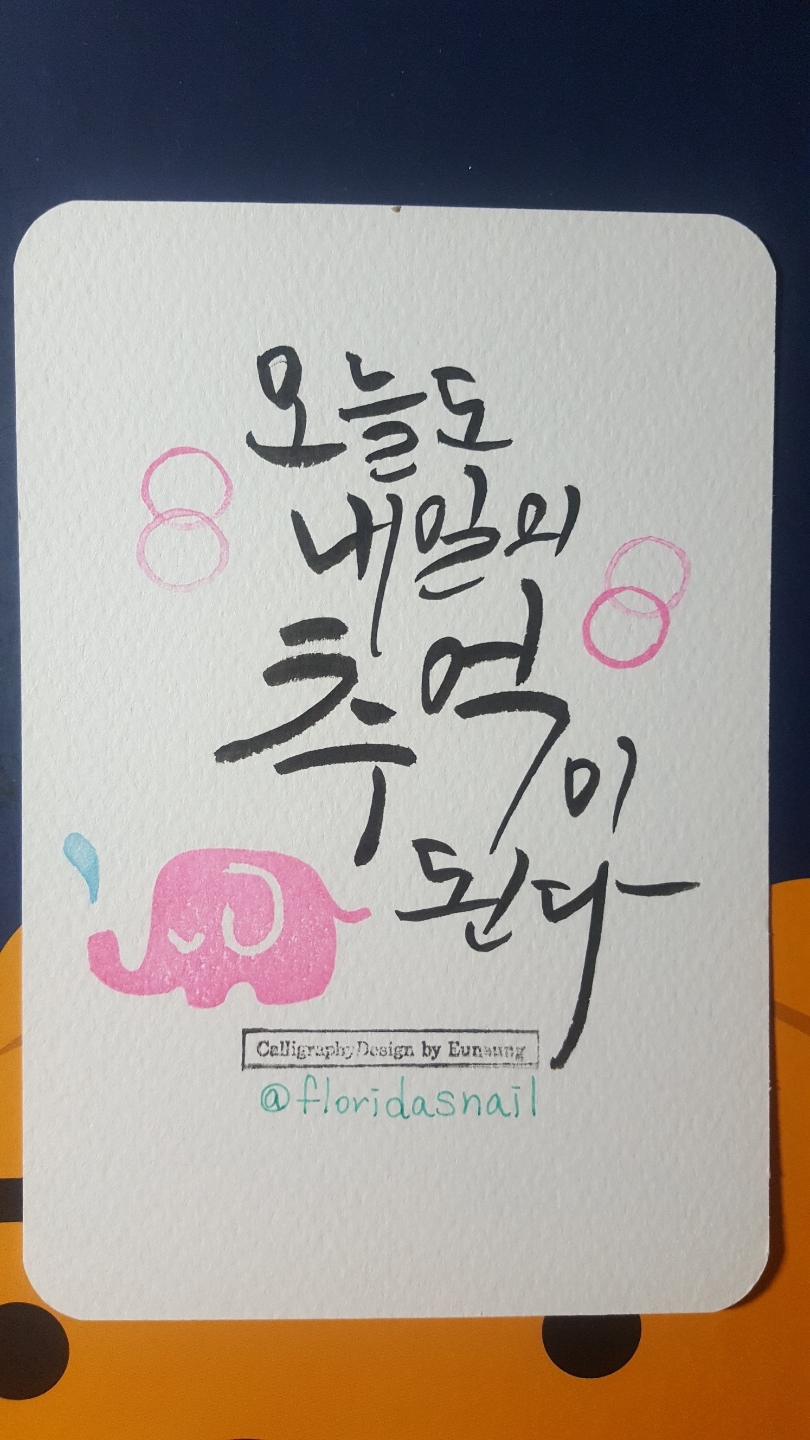 오늘도
내일의
추억이
된다
CalligraphyDesign by Eunaung
@floridasnail